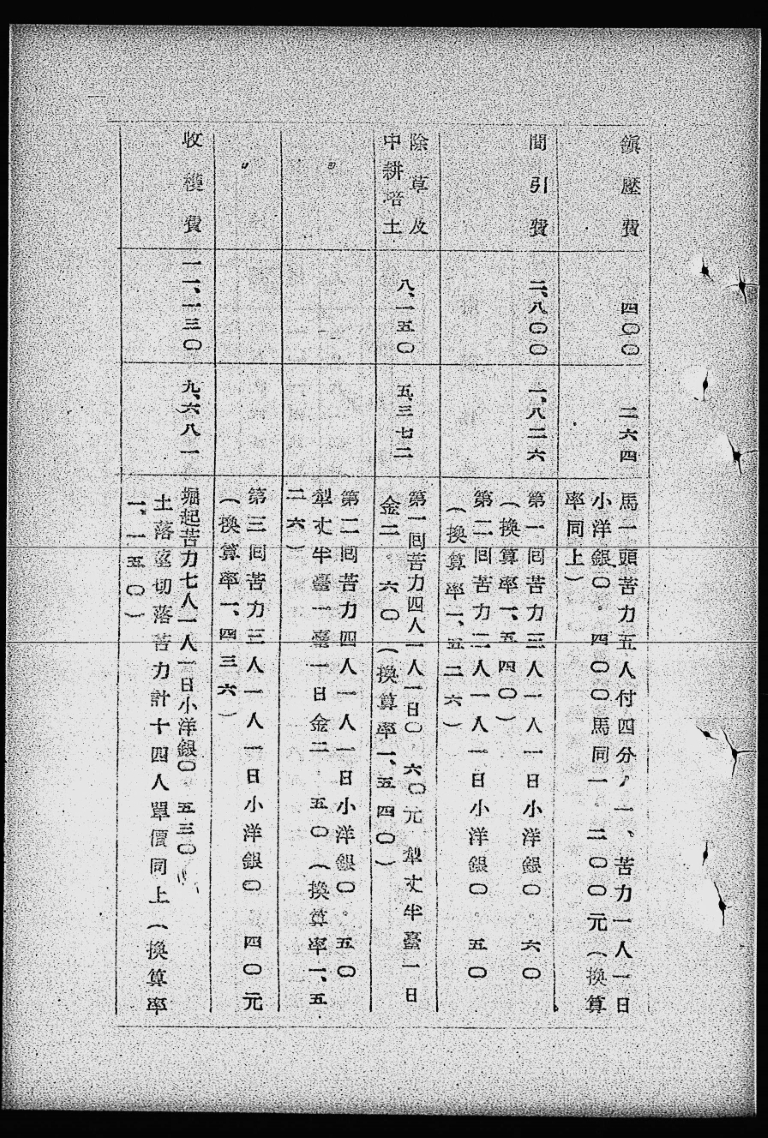 鎭壓費
四〇〇
二六四
馬一頭苦力五人付四分ノ一、苦力一人一日
小洋銀〇.四〇〇馬同一.二〇〇元(換算
率同上)
間引費
二、八〇〇
一、八二六
第一囘苦力三人一人一日小洋銀〇.六〇
(換算率一、五四〇)
第二囘苦力二人一人一日小洋銀〇.五〇
(換算率一、五二六)
除草及
中耕培土
八、一五〇
五、三七二
第一囘苦力四人一人一日〇.六〇元犁丈牛臺一日
金二.六〇(換算率一、五四〇)
〃
第二囘苦力四人一人一日小洋銀〇.五〇
犁丈牛臺一臺一日金二.五〇(換算率一、五
二六)
〃
第三囘苦力三人一人一日小洋銀〇.四〇元
(換算率一、四三六)
收穫費
一一、一三〇
九、六八一
堀起苦力七人一人一日小洋銀〇.五三〇
土落莖切落苦力計十四人單價同上(換算率
一、一五〇)